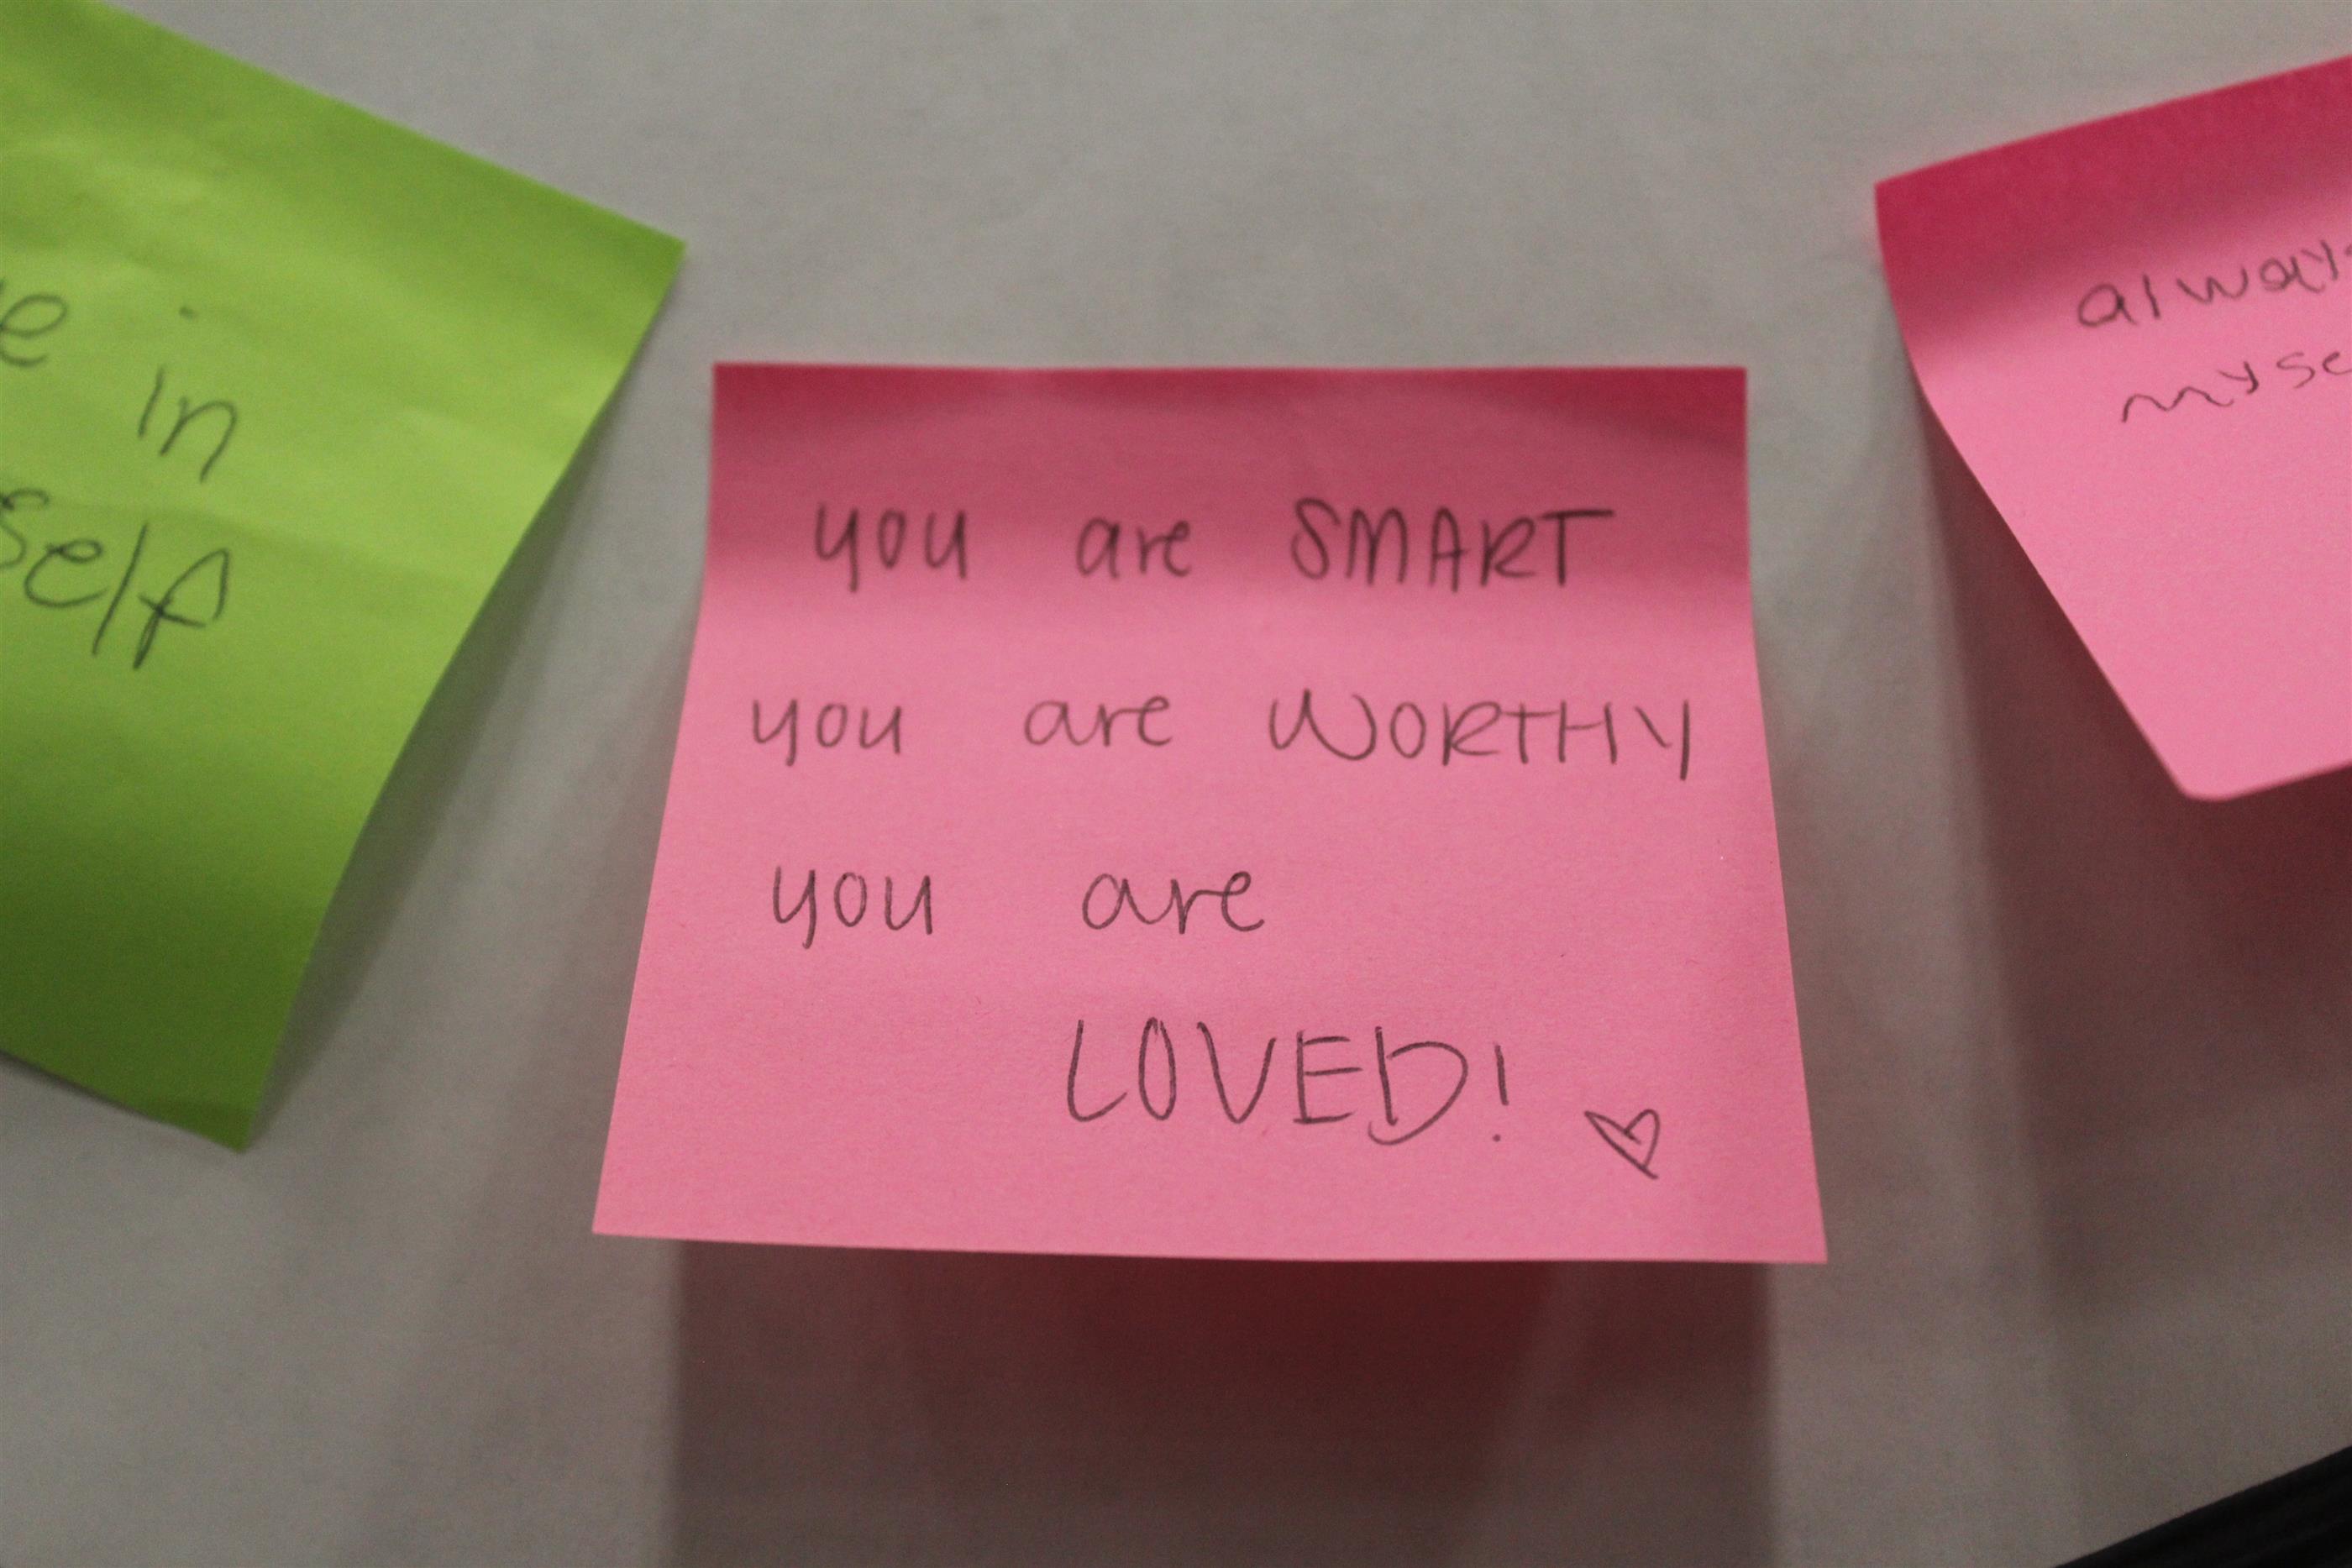 in
self
you are SMART
you are WORTHY
you are
LOVED!